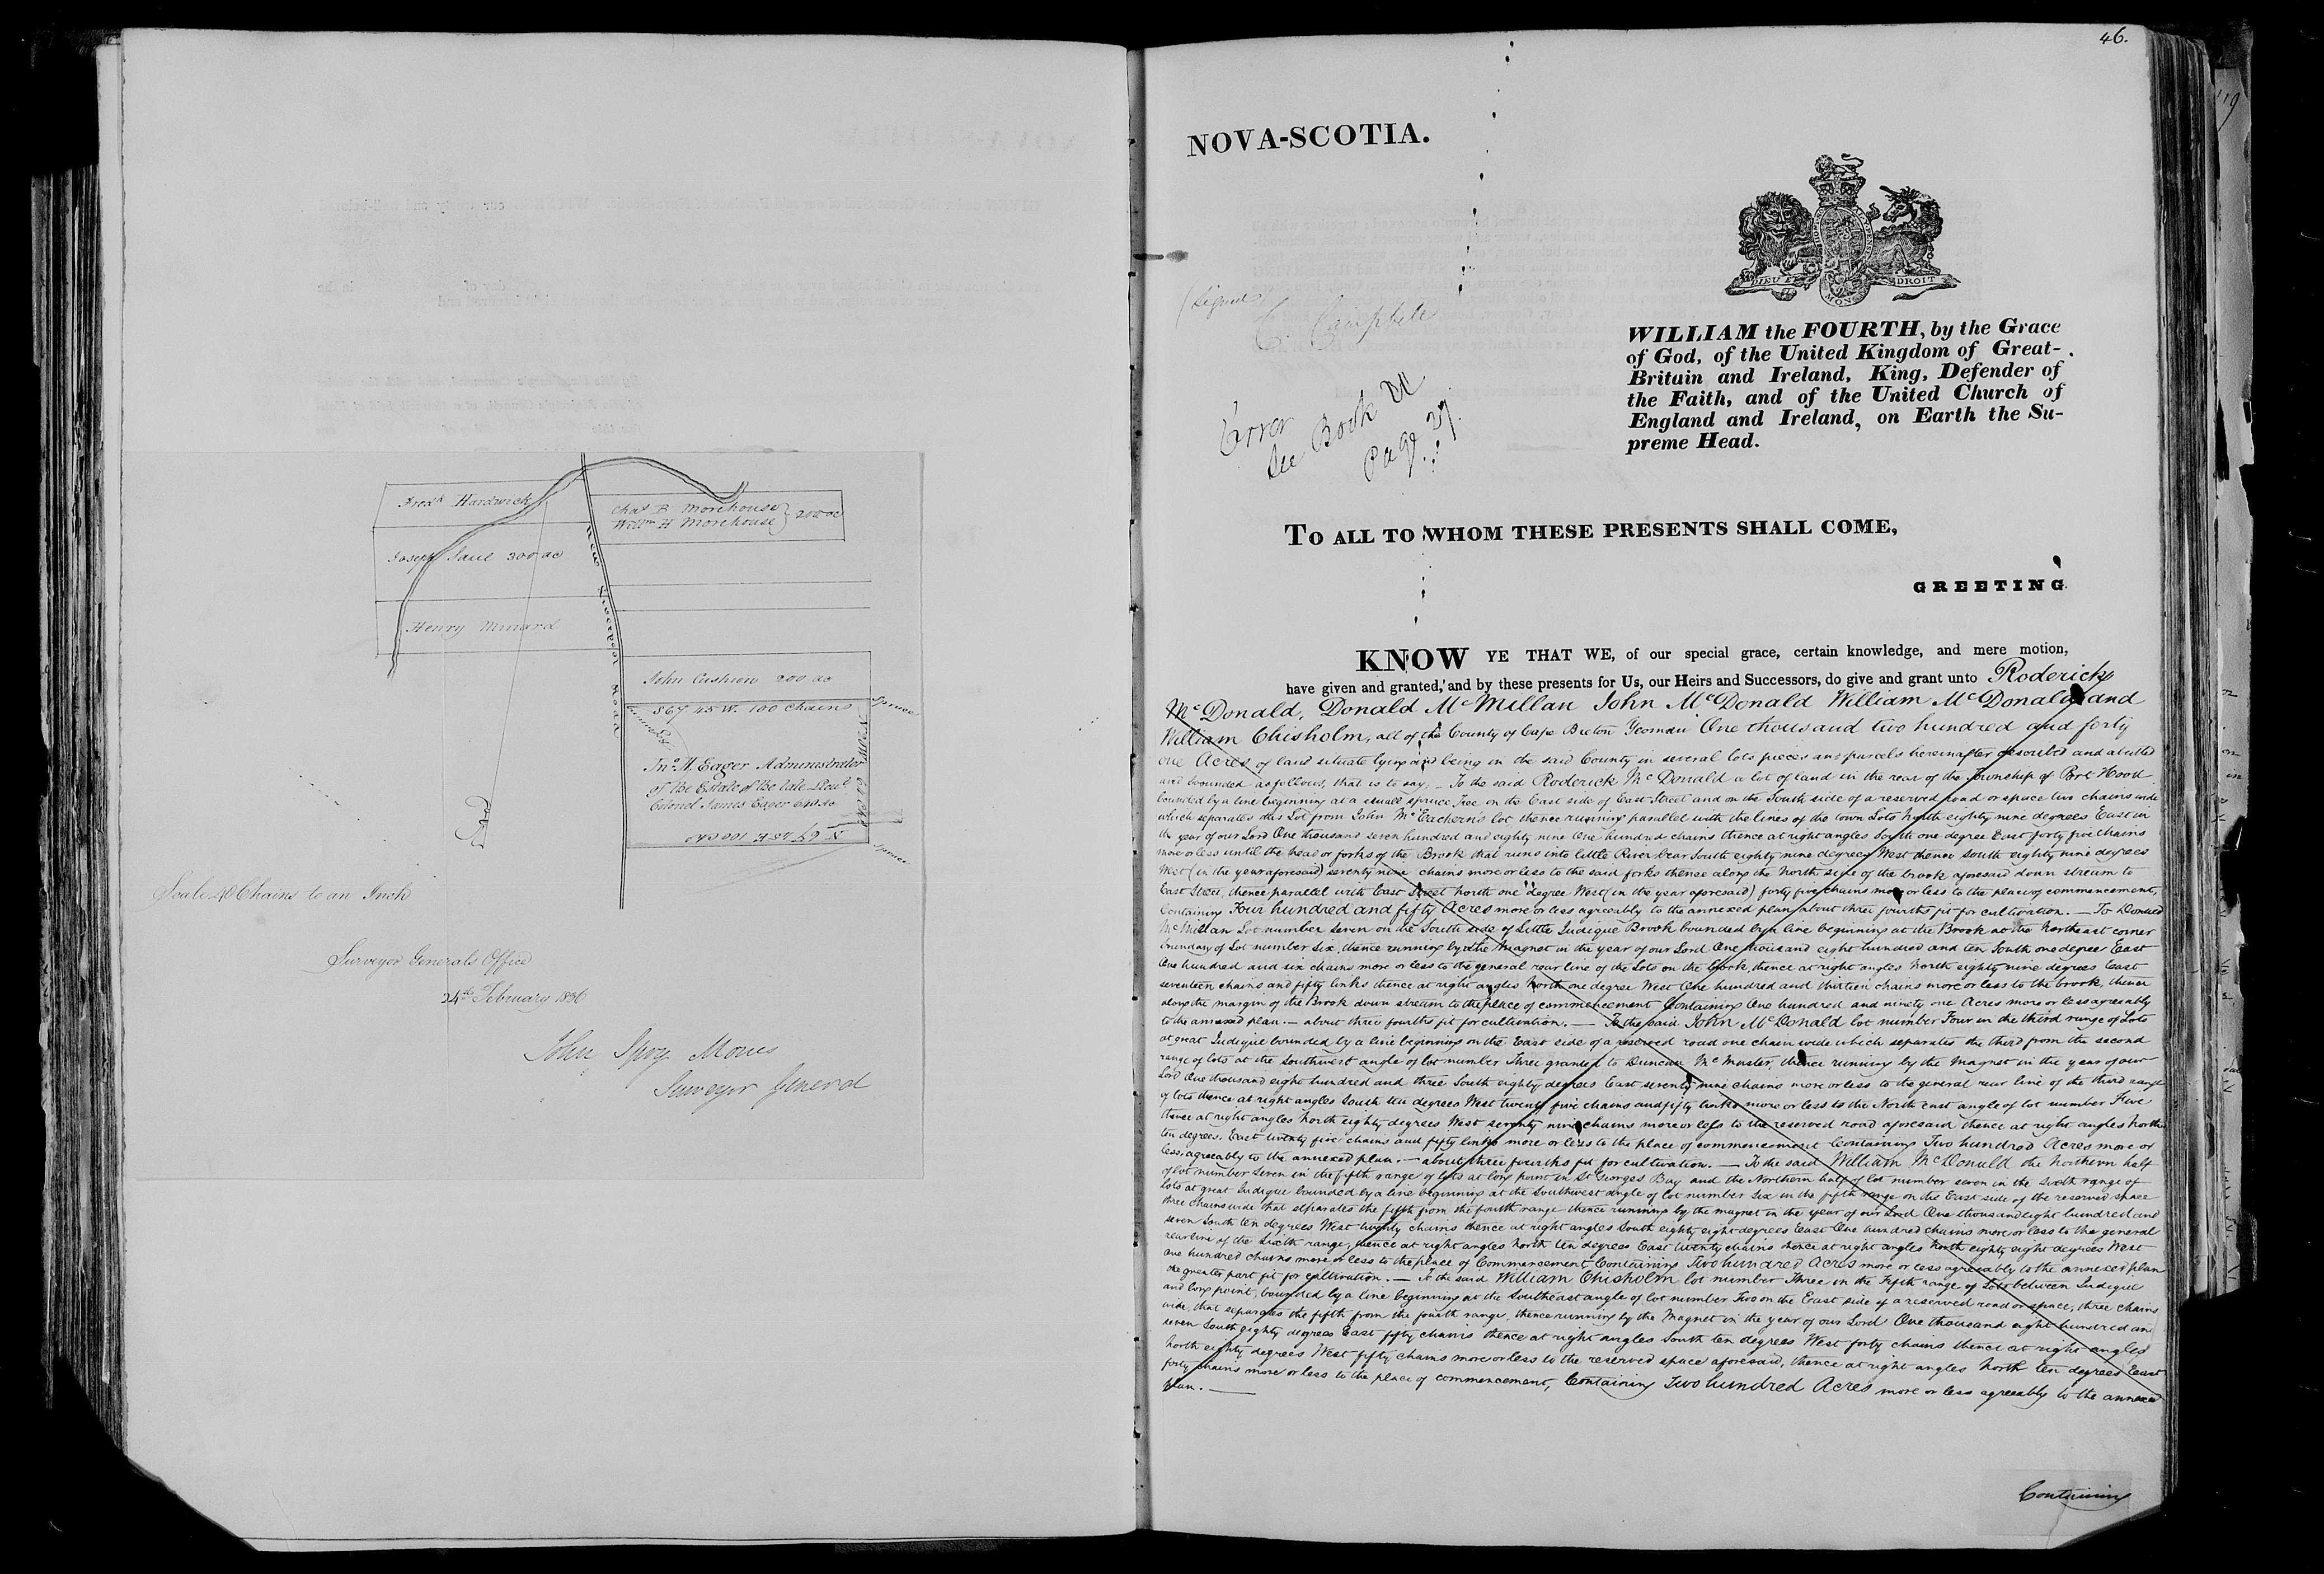 Fredk Hardwick
Chas B Morehouse
Willm H Morehouse } 200 ac
Joseph Saul 200 ac
Henry Minard
New Liverpool Road
John Cushion 200 ac
S 67 45 W. 100 Chains
Spruce
Jno. M. Eager Administrator
of the Estate of the late Lieut
Colonel James Eager 640 ac
Spruce
Scale 40 Chains to an Inch
Surveyor Generals Office
24th February 1836
John Spry Morris
Surveyor General
46.
NOVA-SCOTIA.
DIEU ET MON DROIT
(Signed)
C. Campbell
Error
See Book U
Page 27.
WILLIAM the FOURTH, by the Grace
of God, of the United Kingdom of Great-
Britain and Ireland, King, Defender of
the Faith, and of the United Church of
England and Ireland, on Earth the Su-
preme Head.
TO ALL TO WHOM THESE PRESENTS SHALL COME,
GREETING
KNOW YE THAT WE, of our special grace, certain knowledge, and mere motion,
have given and granted, and by these presents for Us, our Heirs and Successors, do give and grant unto Roderick
McDonald, Donald McMillan John McDonald William McDonald and
William Chisholm, all of the County of Cape Breton Yeomen One thousand two hundred and forty
one Acres of land situate lying and being in the said County in several lots pieces and parcels hereinafter described and abutted
and bounded as follows, that is to say, - To the said Roderick McDonald a lot of land in the rear of the Township of Port Hood
bounded by a line beginning at a small spruce Tree on the East side of East Street and on the South side of a reserved road or space two chains wide
which separates this Lot from John McEachern's lot thence running parallel with the lines of the town Lots North eighty nine degrees East in
the year of our Lord One thousand seven hundred and eighty nine One hundred chains thence at right angles South one degree East forty five chains
more or less until the head or forks of the Brook that runs into little River bear South eighty nine degrees West thence South eighty nine degrees
West (in the year aforesaid) seventy nine chains more or less to the said forks thence along the North side of the brook aforesaid down stream to
East Street, thence parallel with East Street North one degree West (in the year aforesaid) forty five chains more or less to the place of commencement,
Containing Four hundred and fifty Acres more or less agreeably to the annexed plan about three fourths fit for cultivation. — To Donald
McMillan Lot number seven on the South side of Little Judique Brook bounded by a line beginning at the Brook at the Northeast corner
boundary of Lot number six, thence running by the Magnet in the year of our Lord One thousand eight hundred and ten South one degree East
One hundred and six chains more or less to the general rear line of the Lots on the brook, thence at right angles North eighty nine degrees East
seventeen chains and fifty links thence at right angles North one degree West One hundred and thirteen chains more or less to the brook, thence
along the margin of the Brook down stream to the place of commencement Containing One hundred and ninety one Acres more or less agreeably
to the annexed plan. — about three fourths fit for cultivation. — To the said John McDonald lot number Four in the third range of Lots
at great Judique bounded by a line beginning on the East side of a reserved road one chain wide which separates the third from the second
range of lots at the Southwest angle of lot number Three granted to Duncan McMaster, thence running by the Magnet in the year of our
Lord One thousand eight hundred and three South eighty degrees East seventy nine chains more or less to the general rear line of the third range
of lots thence at right angles South ten degrees West twenty five chains and fifty links more or less to the North east angle of lot number Five
thence at right angles North eighty degrees West seventy nine chains more or less to the reserved road aforesaid thence at right angles North
ten degrees East twenty five chains and fifty links more or less to the place of commencement Containing Two hundred Acres more or
less, agreeably to the annexed plan. — about three fourths fit for cultivation. — To the said William McDonald the Northern half
of lot number seven in the fifth range of lots at long point in St Georges Bay and the Northern half of lot number seven in the sixth range of
lots at great Judique bounded by a line beginning at the Southwest angle of lot number Six in the fifth range on the East side of the reserved space
three chains wide that separates the fifth from the fourth range thence running by the magnet in the year of our Lord One thousand eight hundred and
seven South ten degrees West twenty chains thence at right angles South eighty eight degrees East One hundred chains more or less to the general
rear line of the sixth range, thence at right angles North ten degrees East twenty chains thence at right angles North eighty eight degrees West
One hundred chains more or less to the place of Commencement Containing Two hundred Acres more or less agreeably to the annexed plan
the greater part fit for cultivation. — To the said William Chisholm lot number Three in the Fifth range of Lots between Judique
and long point, bounded by a line beginning at the Southeast angle of lot number Two on the East side of a reserved road or space, three chains
wide, that separates the fifth from the fourth range, thence running by the Magnet in the year of our Lord One thousand eight hundred and
seven South eighty degrees East fifty chains thence at right angles South ten degrees West forty chains thence at right angles
North eighty degrees West fifty chains more or less to the reserved space aforesaid, thence at right angles North ten degrees East
forty chains more or less to the place of commencement, Containing Two hundred Acres more or less agreeably to the annexed
plan. —
Containing